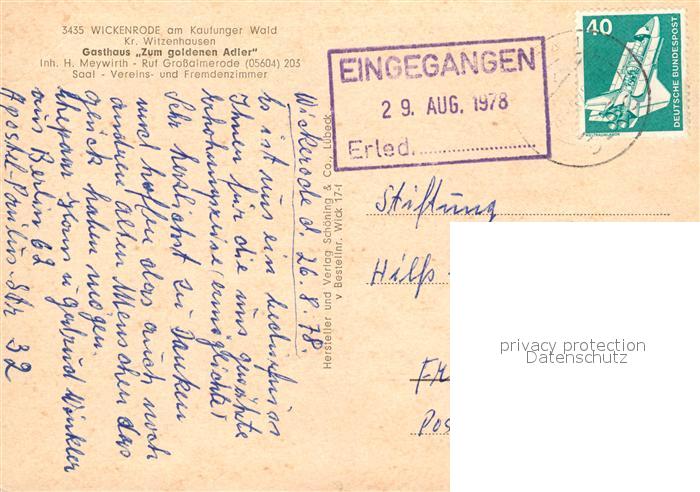 3435 WICKENRODE am Kaufunger Wald
Kr. Witzenhausen
Gasthaus „Zum goldenen Adler"
Inh. H. Meywirth - Ruf Großalmerode (05604) 203
Saal - Vereins- und Fremdenzimmer
EINGEGANGEN
29. AUG. 1978
Erled.
40
DEUTSCHE BUNDESPOST
WELTRAUMLABOR
Wickerode d. 26.8.78.
Es ist uns ein Bedürfniss
Ihnen für die uns gewährte
Erholungsreise ermöglichte
Sehr herzlichst zu Danken
und hoffen das auch noch
andren alten Menschen das
Glück haben mögen.
Ehepaar Hans u Gertrud Winkler
aus Berlin 62
Apostel-Paulus-Str 32
Hersteller und Verlag Schöning & Co., Lübeck
v Bestellnr. Wick 17-1
Stiftung
Hilfs-
Pos
privacy protection
Datenschutz